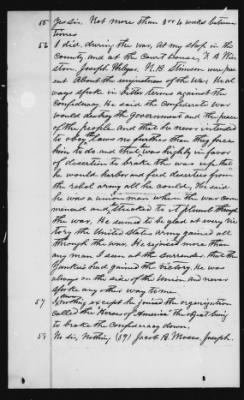 55 Yes sir. Not more than 3 or 4 weeks between
times
56 I did, during the war, At my shop in the
County and at the Court house,
Joseph Phipps.
out About the
ways spoke in bitter terms against the
Confederacy. He said the Confederate war
would destroy the government and the peace
of the people and that he never intended
to obey the Laws no farther than they forse
him to do and that was highly in favor
of desertion to brake the war up, that
he would harbor and feed deserters from
the rebel army all he could, He said
he was a union man when the war com
menced and he
the war. He seemed to be glad at every vic
tory the United States army gained all
through the war. He rejoiced more than
any man I seen at the surrender that the
Yankees had gained the victory. He was
always on the side of the Union and never
spoke any other way to me
57 Nothing except he joined the organization
called the "Heroes of America" the object being
to brake the Confederacy down.
58 No sir, Nothing (59) Jacob B. Moore, Joseph